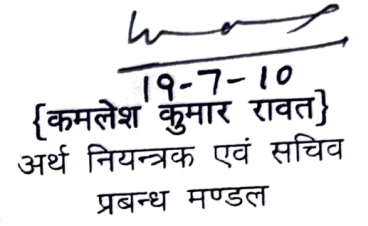 19-7-10
{कमलेश कुमार रावत}
अर्थ नियन्त्रक एवं सचिव
प्रबन्ध मण्डल